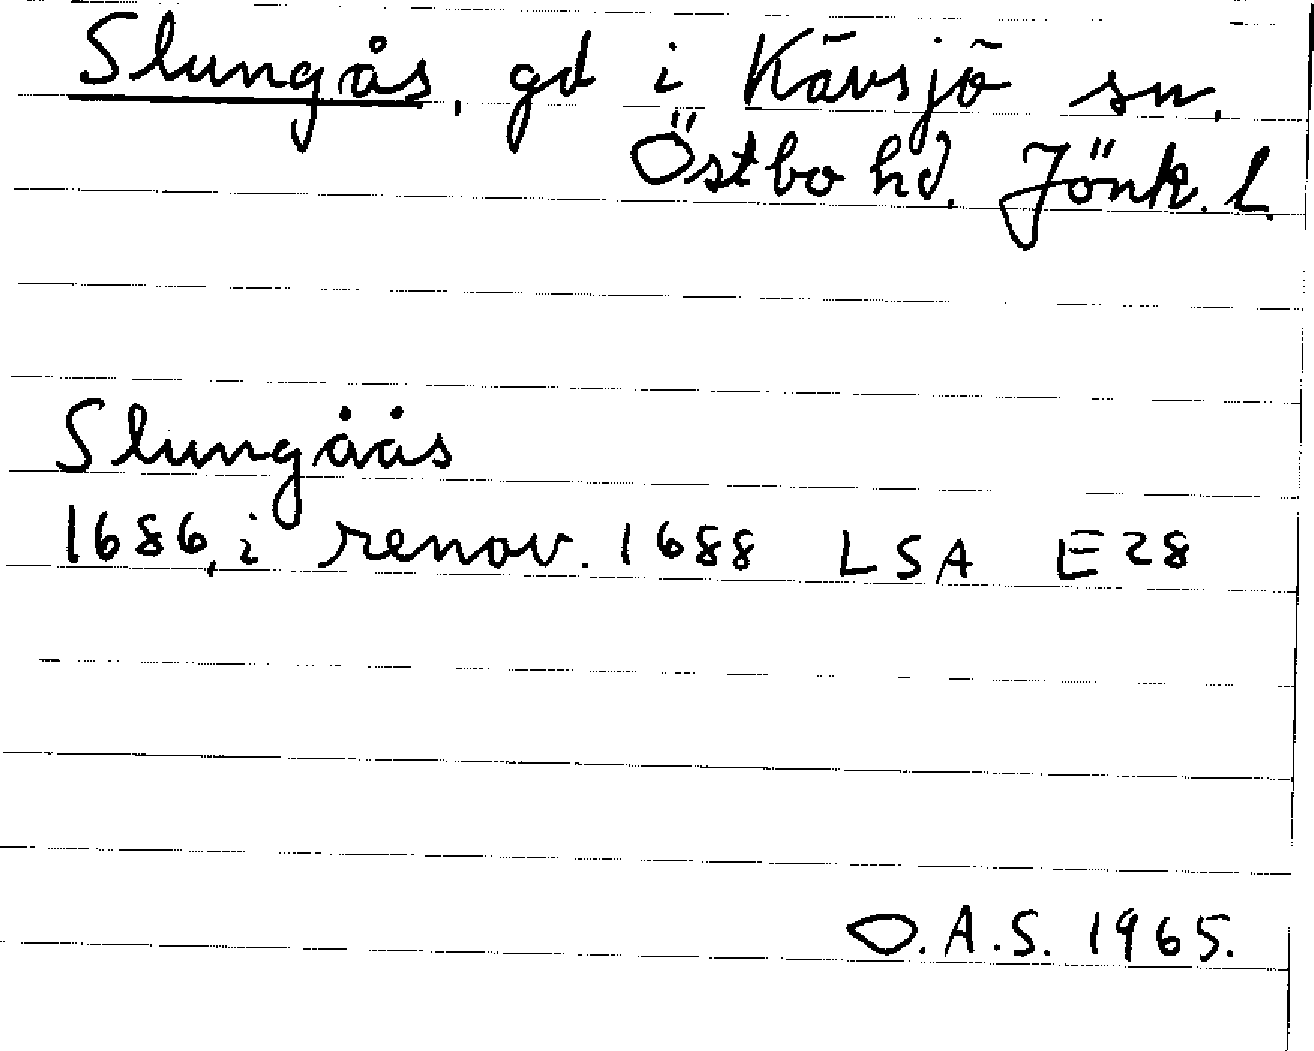 Slungås, gd i Kävsjö sn.
Östbo hd. Jönk. L.
Slungåås
1686, i renov. 1688 LSA E28
O.A.S. 1965.